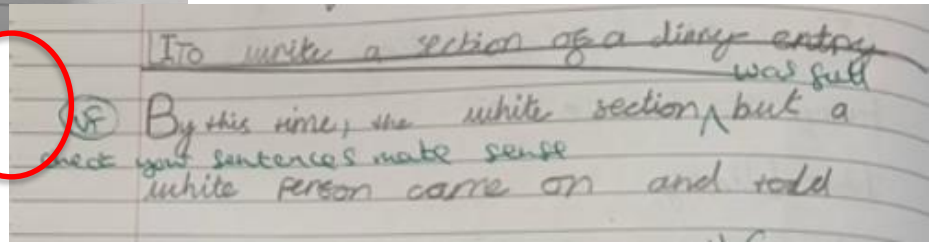 LTO write a section of a diary entry
was full
VF By this time, the white section ^ but a
check your sentences make sense
white person came on and told